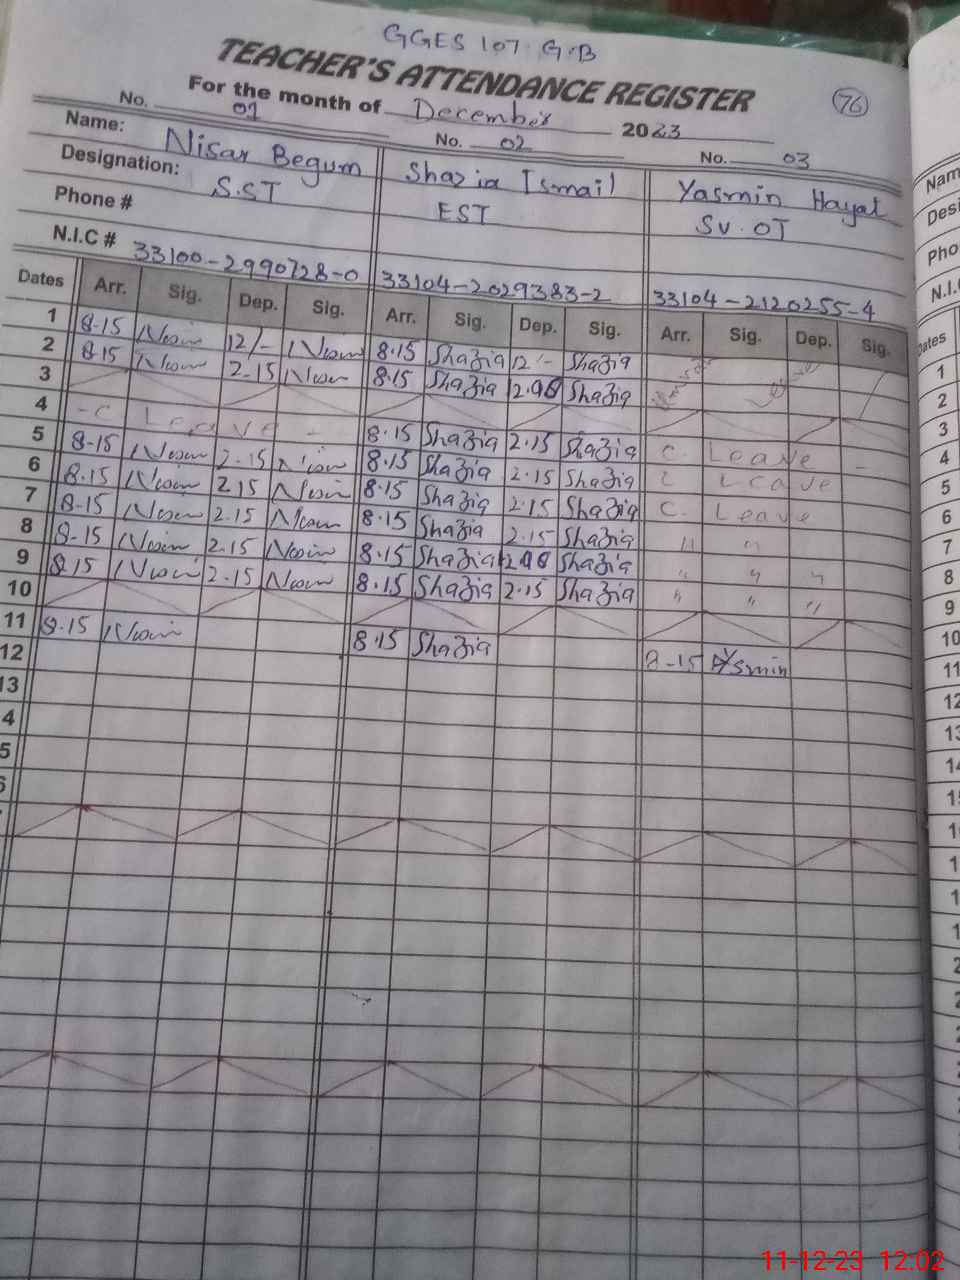 GGES 107 G.B
TEACHER'S ATTENDANCE REGISTER
76
For the month of December 2023
No. 01 No. 02 No. 03
Name: Nisar Begum Shazia Ismail Yasmin Hayat
Designation: S.ST EST SV. OT
Phone #
N.I.C # 33100-2990728-0 33104-2029383-2 33104-2120255-4
Dates Arr. Sig. Dep. Sig. Arr. Sig. Dep. Sig. Arr. Sig. Dep. Sig.
1 8-15 12/- 8.15 Shazia 12/- Shazia
2 8.15 2-15 8.15 Shazia Shazia
3
4 - C Leave - 8.15 Shazia 2.15 Shazia C. Leave -
5 8-15 2-15 8.15 Shazia 2.15 Shazia Leave
6 8.15 2.15 8.15 Shazia 2.15 Shazia C. Leave
7 8-15 2.15 8.15 Shazia 2.15 Shazia " "
8 8-15 2.15 8.15 Shazia Shazia " " "
9 8.15 2.15 8.15 Shazia 2.15 Shazia " " "
10
11 8.15 8.15 Shazia 8-15 Yasmin
12
13
4
5
6
Nam
Desi
Pho
N.I.C
Dates
1
2
3
4
5
6
7
8
9
10
11
12
13
14
15
11-12-23 12:02